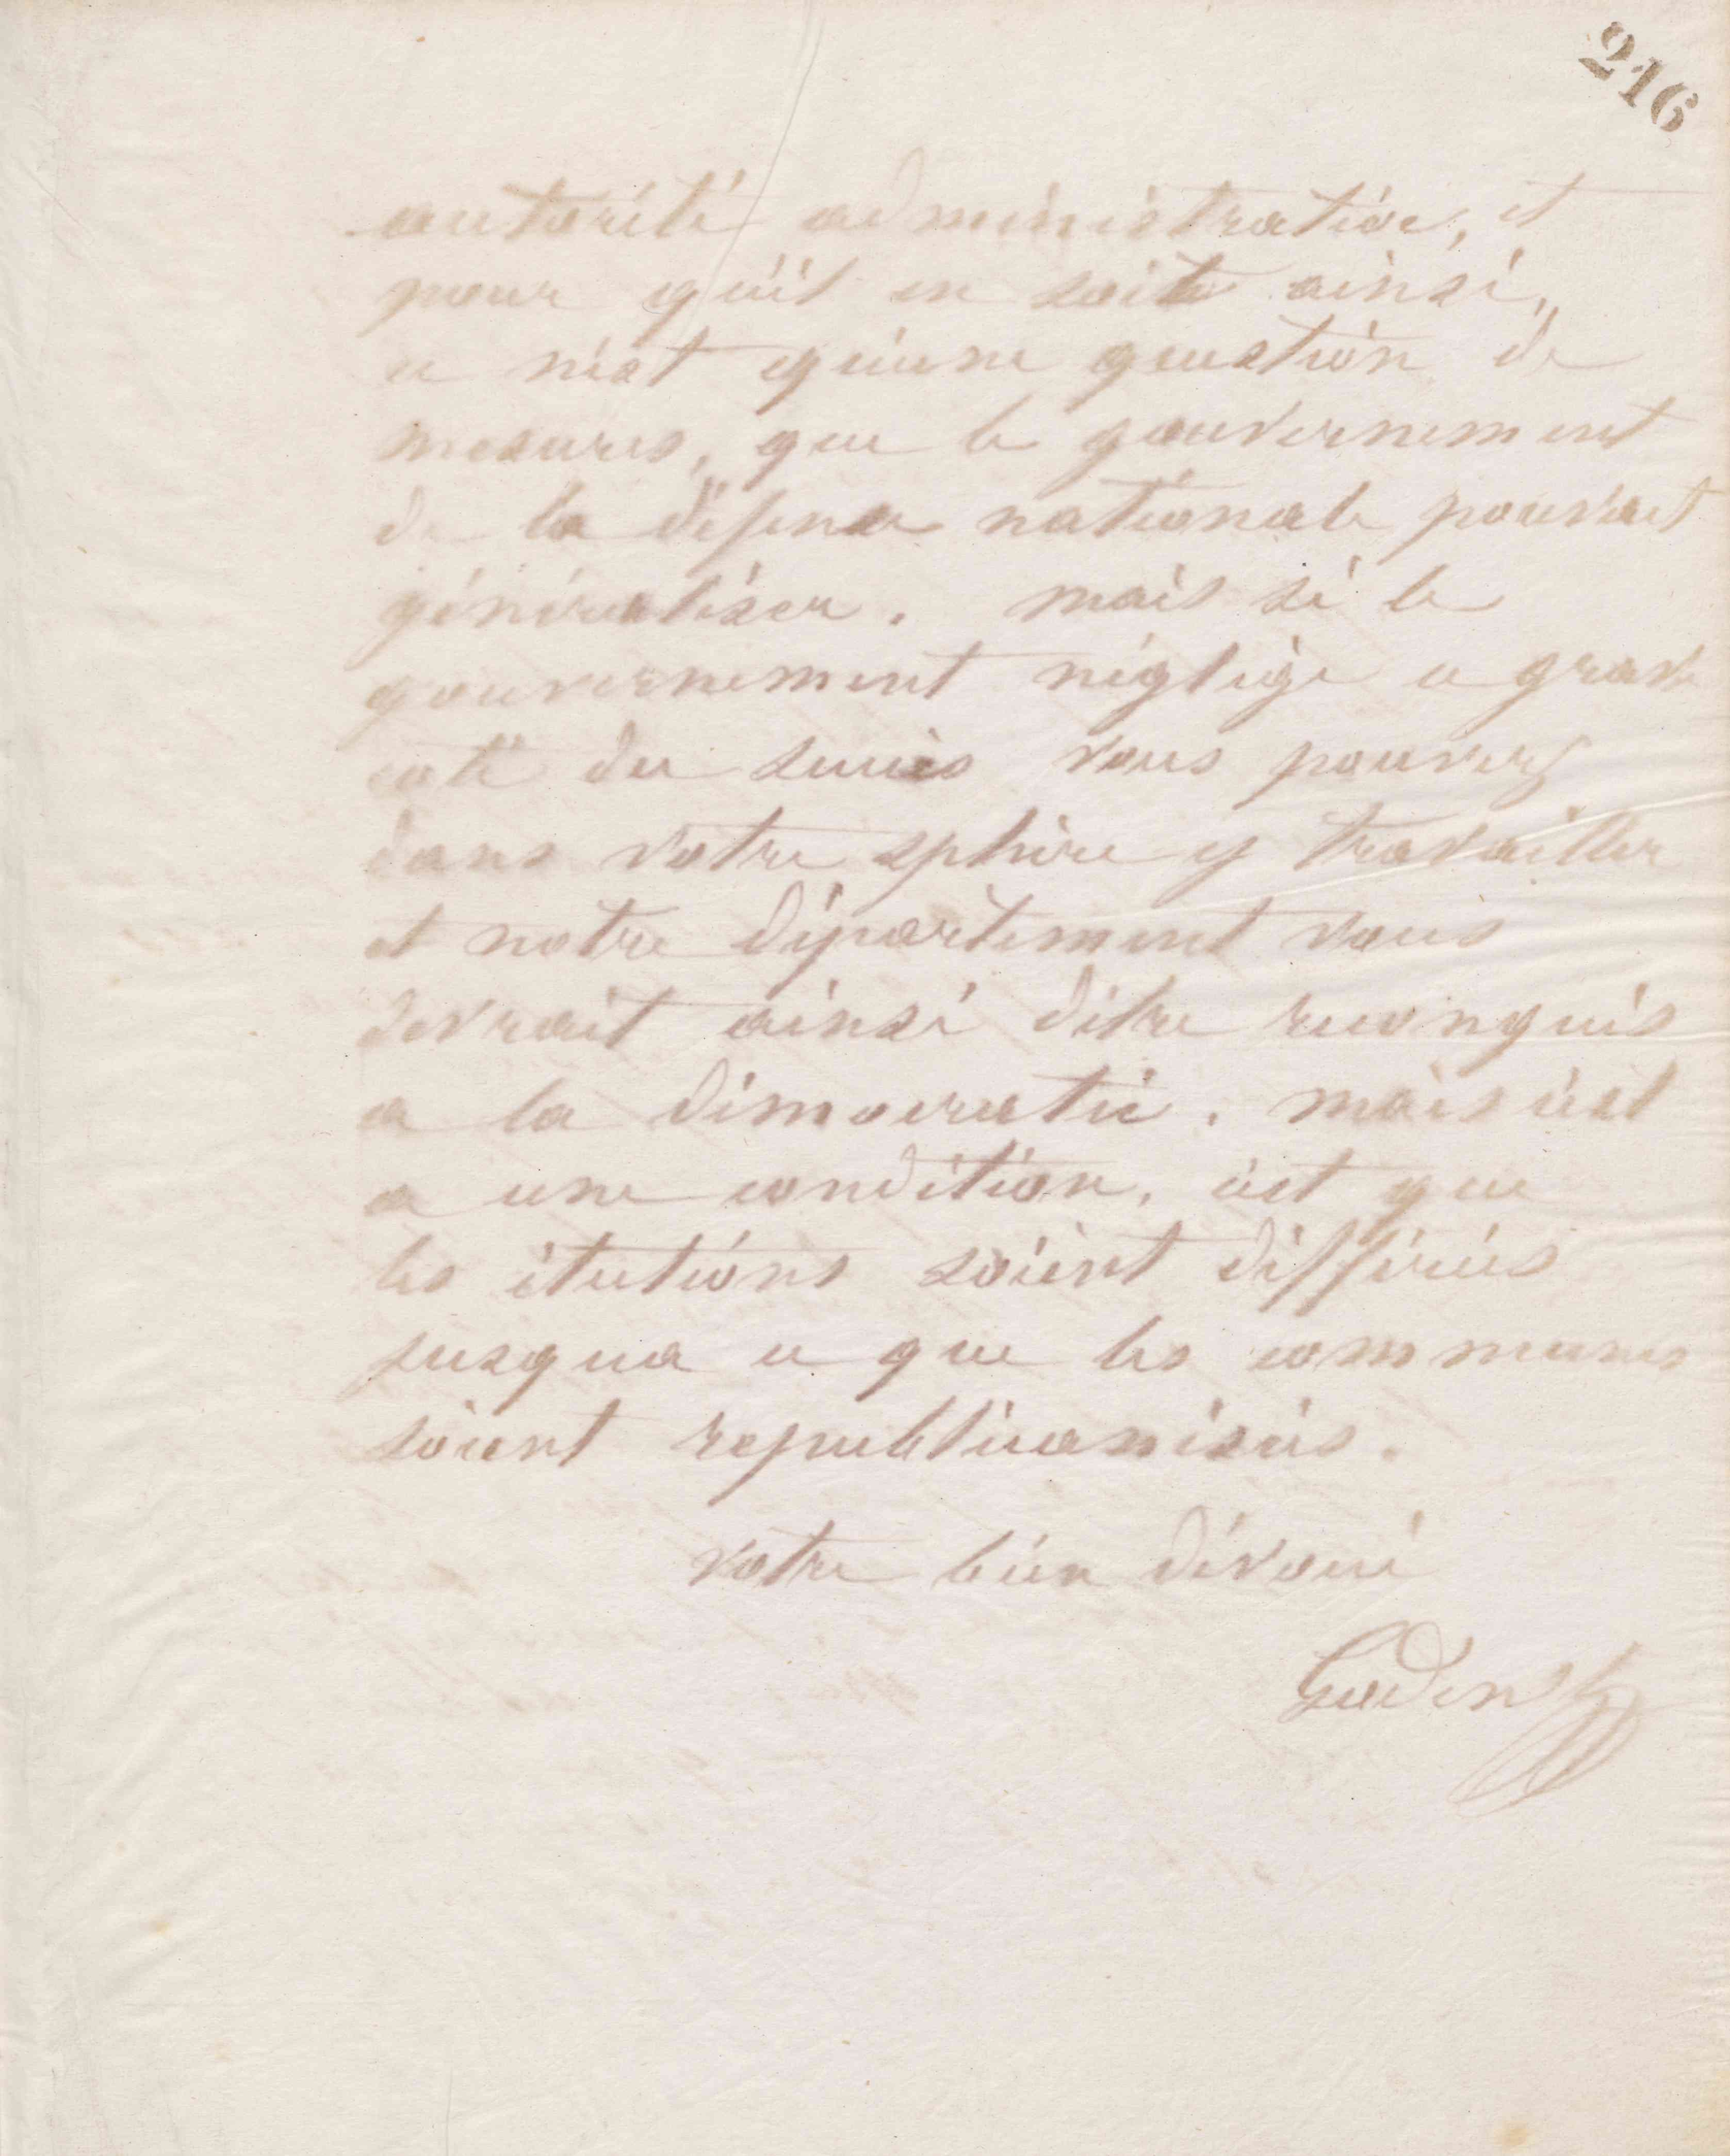 216
autorité administrative, et
pour qu'il en soit ainsi,
ce n'est qu'une question de
mesures, que le gouvernement
de la défense nationale pouvait
généraliser. mais si le
gouvernement néglige ce grave
coté du succès vous pouvez
dans votre sphère y travailler
et notre département vous
devrait ainsi d'être reconquis
a la démocratie. mais c'est
a une condition, c'est que
les élections soient différées
jusqua ce que les communes
soient republicanisées.
votre bien dévoué
Godin